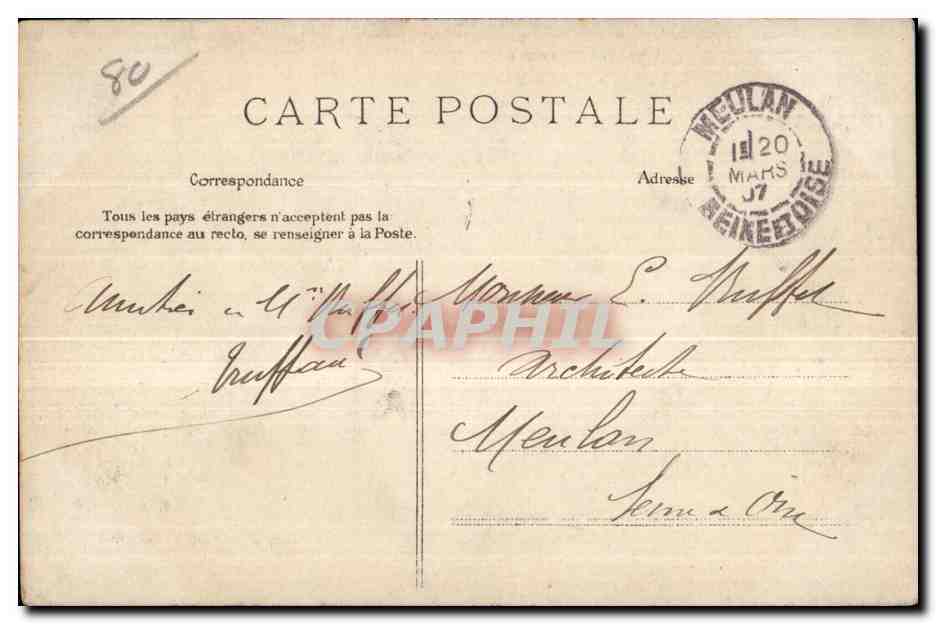 80
CARTE POSTALE
MEULAN
1E 20
MARS
07
SEINE ET OISE
Correspondance
Adresse
Tous les pays étrangers n'acceptent pas la
correspondance au recto, se renseigner à la Poste.
Monsieur E. Buffet
architecte
Meulan
Seine & Oise
Amitiés
Truffaut
CPAPHIL